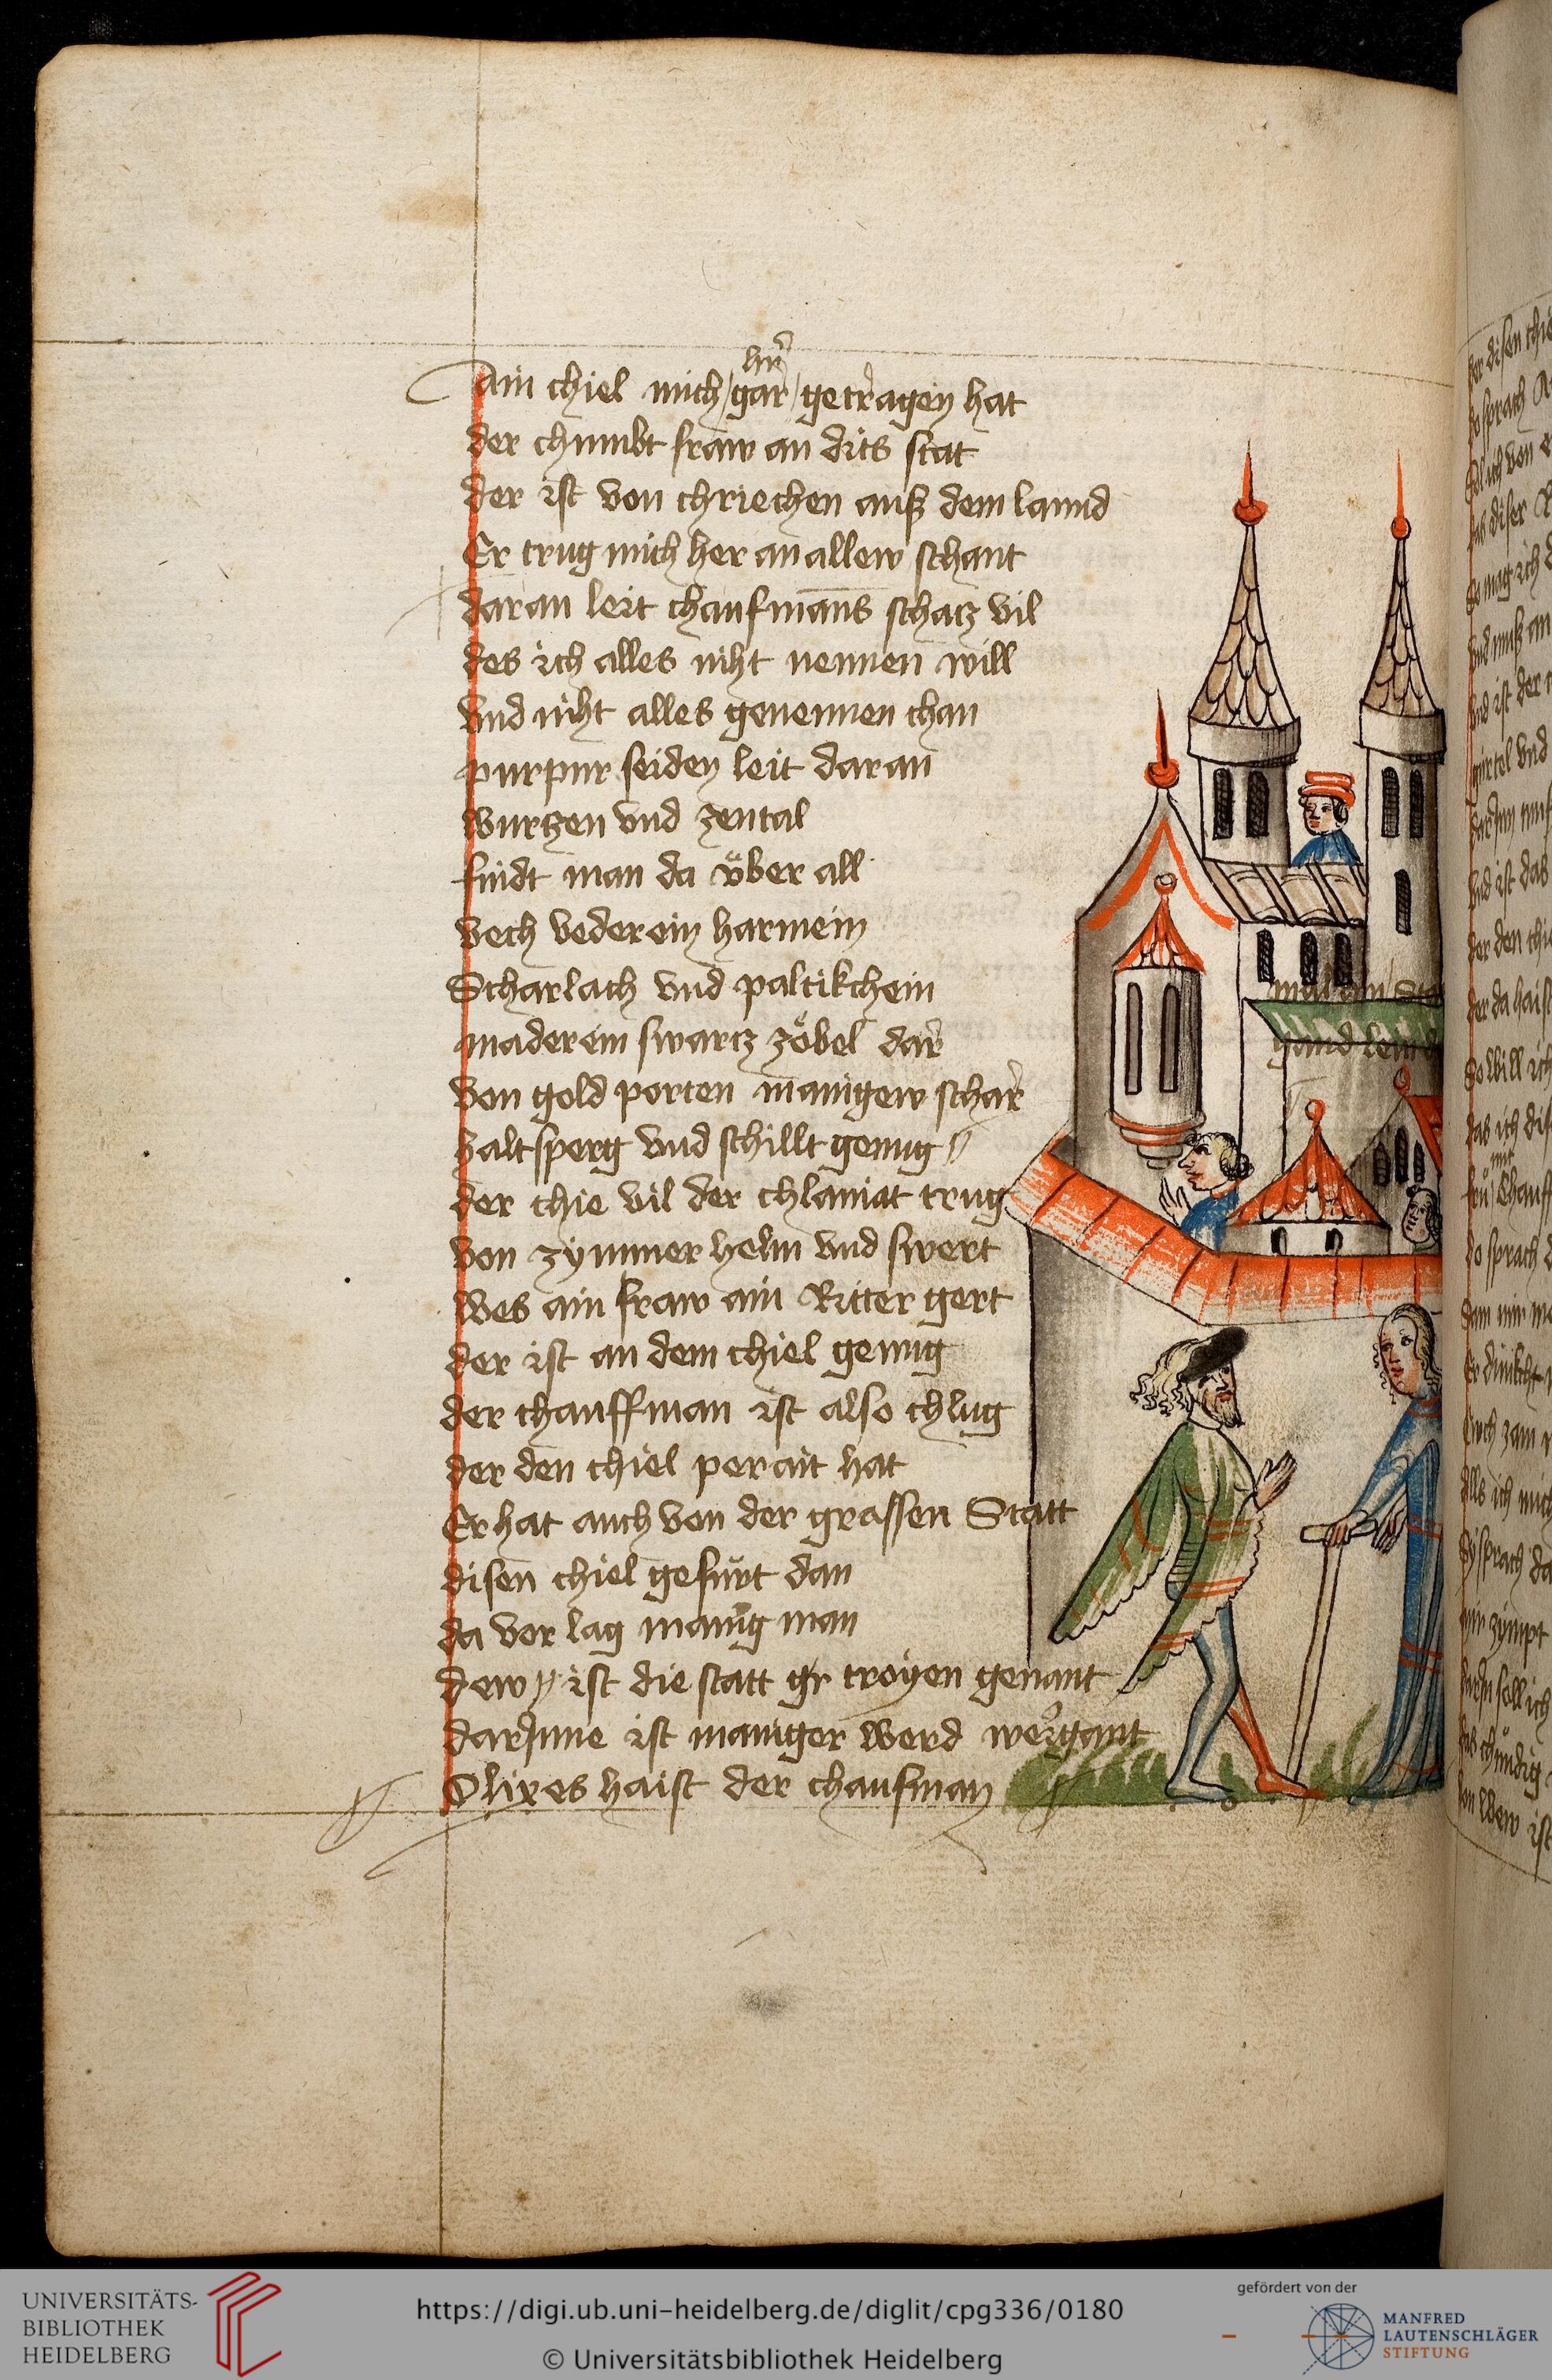 her
Ain chiel mich gar getragen hat
der chumbt fraw an dits stat
der ist von chriechen auß dem lannd
Er trug mich her an allew schant
daran leit chaufmans schatz vil
des ich alles niht nennen will
vnd niht alles genennen chan
purpur seiden leit daran
wurtzen vnd zental
findt man da vͤber all
vech vederein harmein
Scharlach vnd paltikchein
maderein swartz zöbel dar
von gold porten manigew schar
haltsperg vnd schillt genug
der chie vil der chlaniat trug
von zymmer helm vnd swert
wes ain fraw ain Ritter gert
der ist an dem chiel genug
der chauffman ist also chlug
der den chiel perait hat
Er hat auch von der grassen Statt
disen chiel gefürt dan
da vor lag manig man
dew ist die statt gr troyen genant
darJnne ist maniger werd weigant
Olixes haist der chaufman
UNIVERSITÄTS-
BIBLIOTHEK
HEIDELBERG
https://digi.ub.uni-heidelberg.de/diglit/cpg336/0180
© Universitätsbibliothek Heidelberg
gefördert von der
MANFRED
LAUTENSCHLÄGER
STIFTUNG